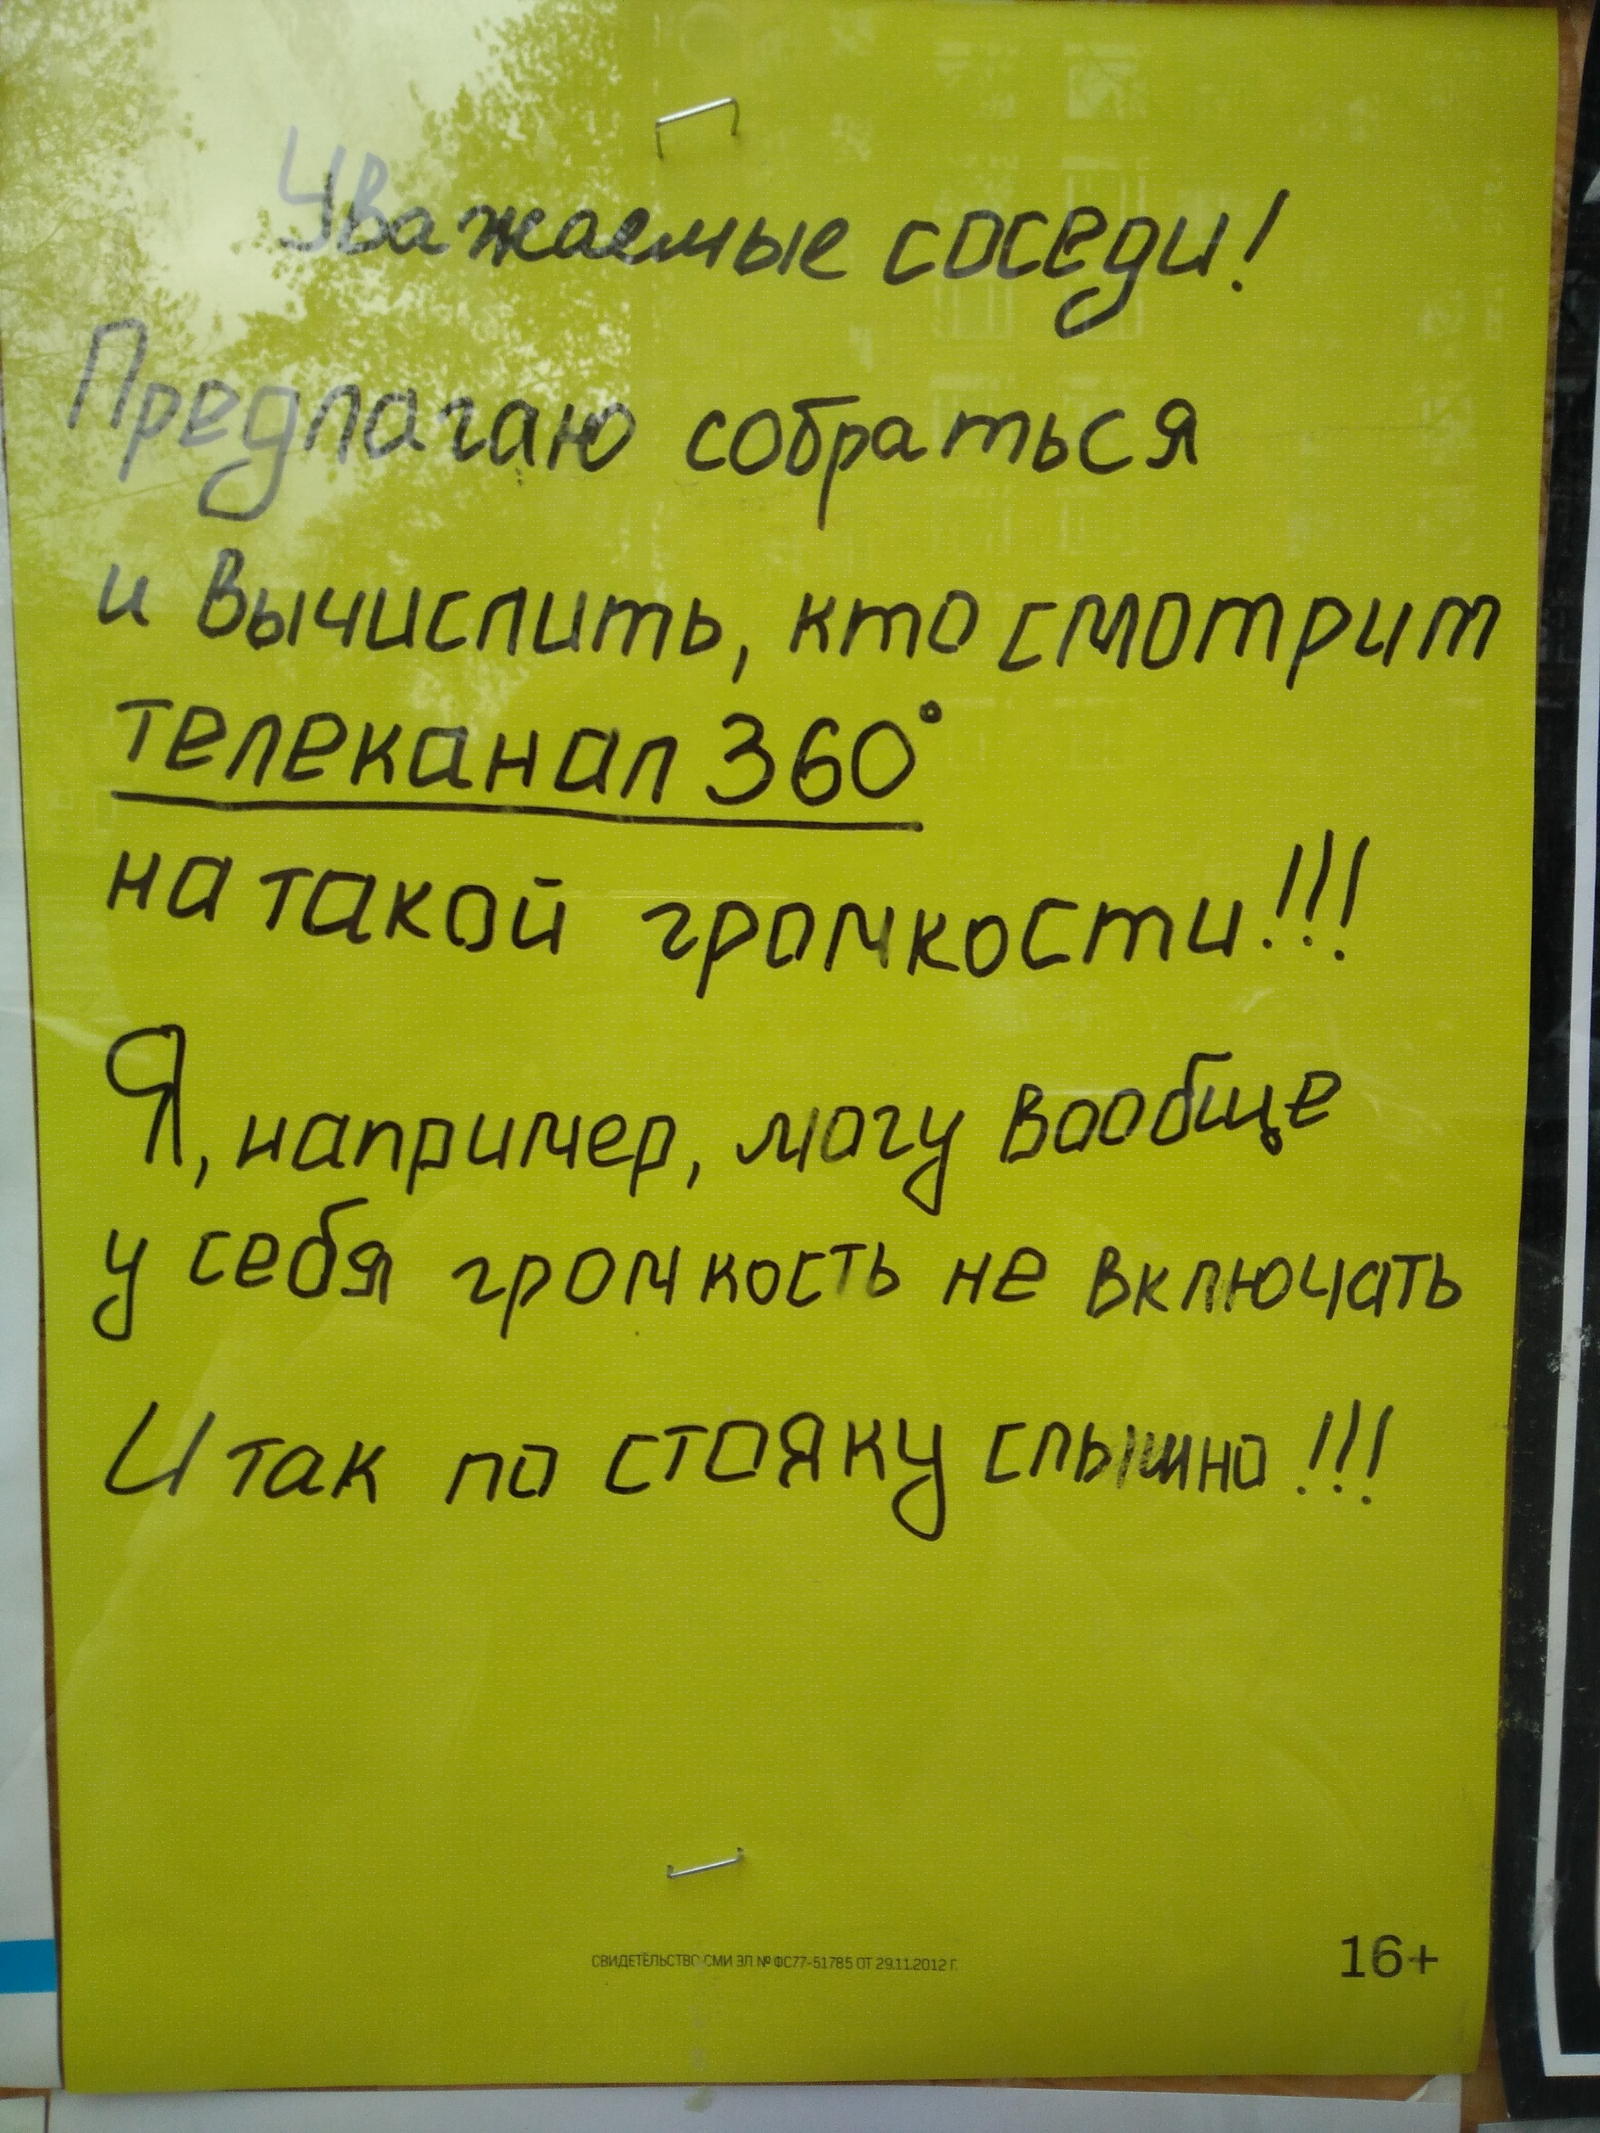 Уважаемые соседи!
Предлагаю собраться
и вычислить, кто смотрит
телеканал 360°
на такой громкости!!!
Я, например, могу вообще
у себя громкость не включать
И так по стояку слышно!!!
СВИДЕТЕЛЬСТВО СМИ ЭЛ № ФС77-51785 ОТ 29.11.2012 Г.
16+